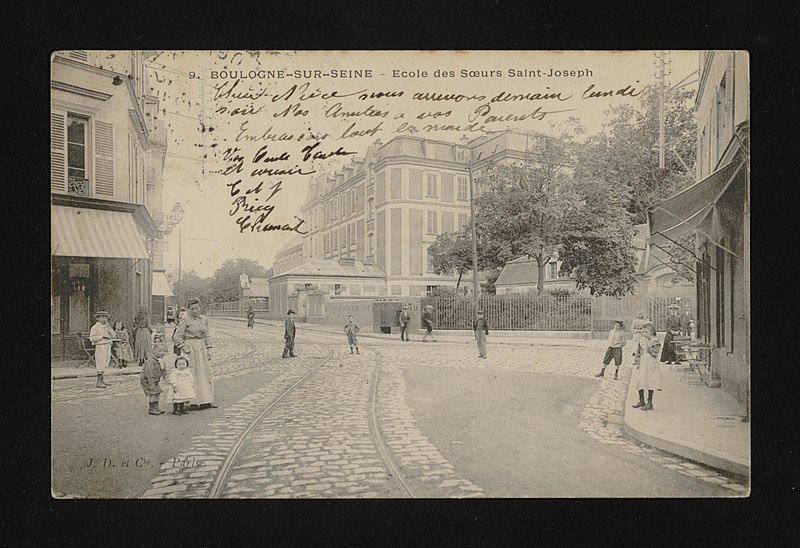 9. BOULOGNE-SUR-SEINE - Ecole des Sœurs Saint-Joseph
Nièce nous arrivons demain lundi
soir Nos Amitiés a vos Parents
Embrassons tout le monde
Vos Oncle Tante
et
J. D. et Cie. - Paris